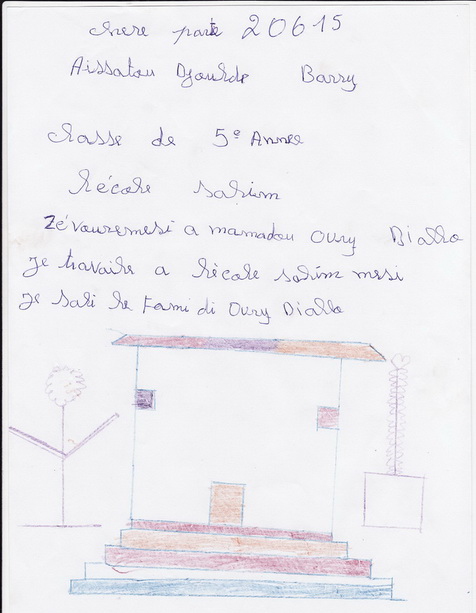 chere parte 20615
Aissatou Djoulde Barry
classe de 5e Annee
l'école salim
zévouremesi a mamadou oury Diallo
Je travaile a l'école salim mesi
Je sali la Fami di Oury Diallo